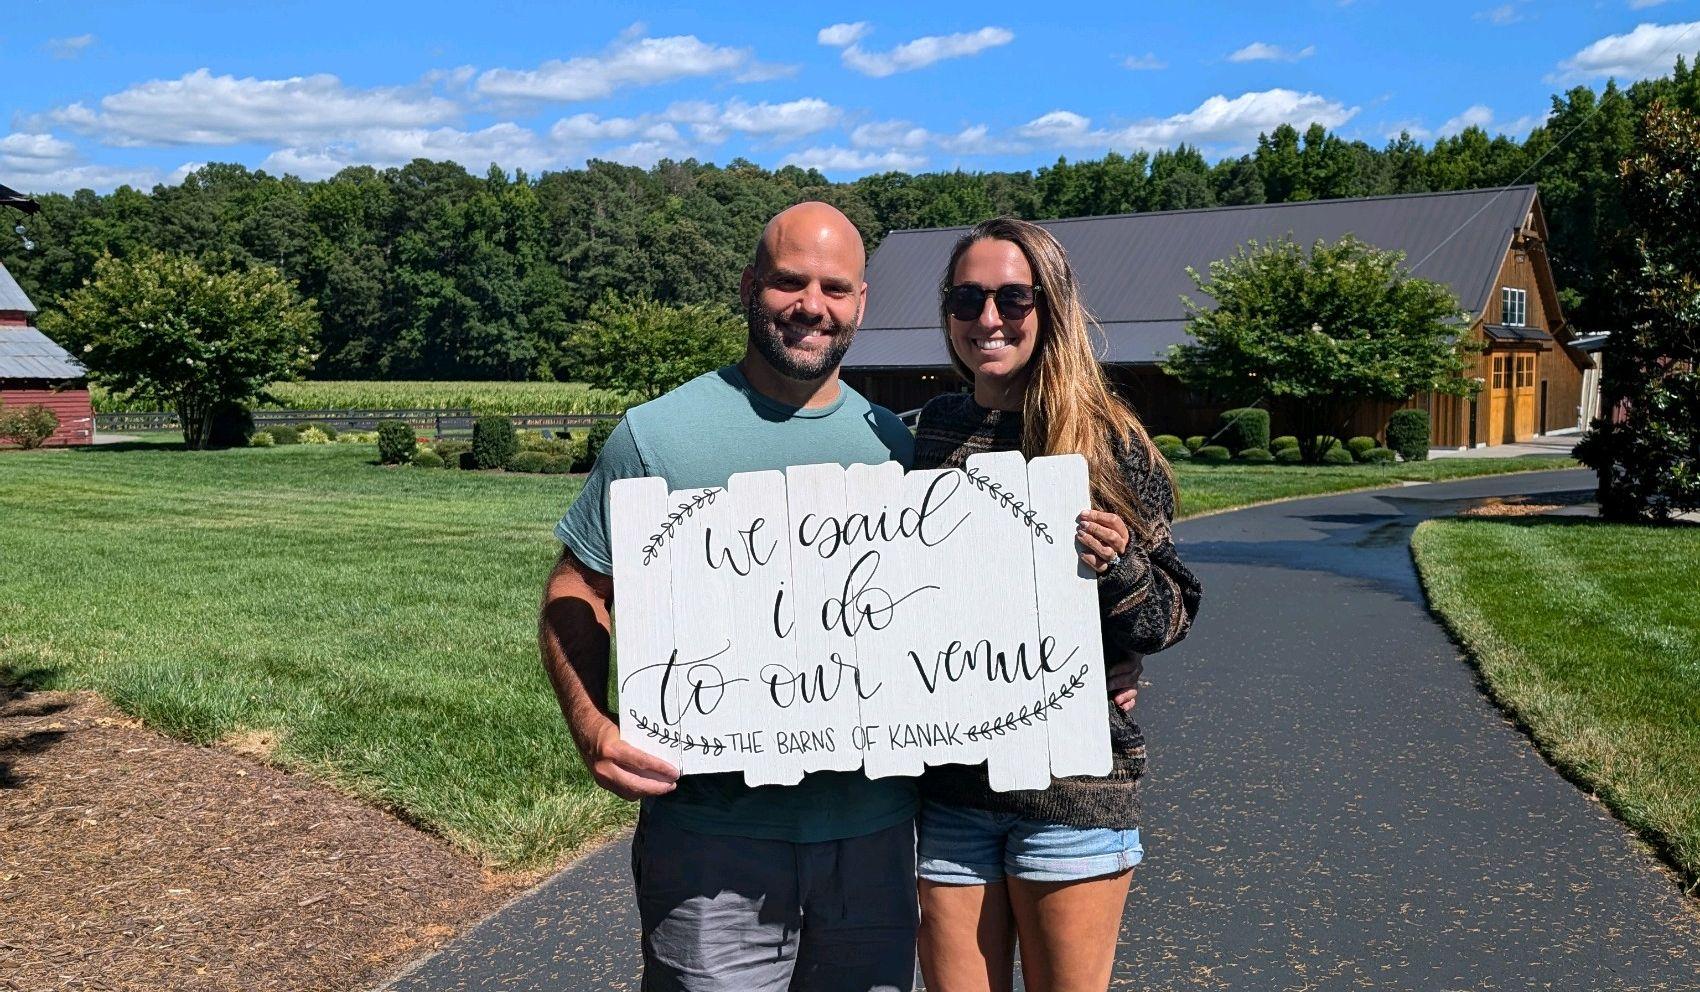 we said
i do
to our venue
THE BARNS OF KANAK